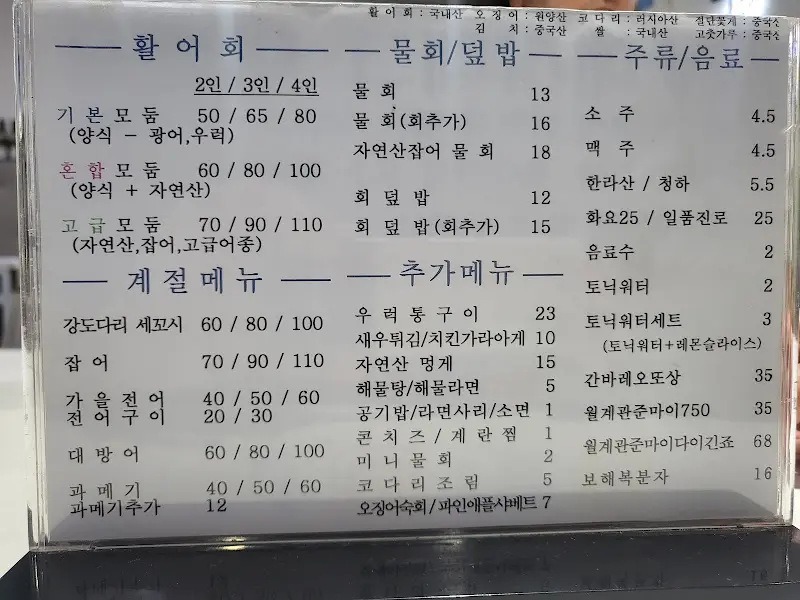 활어회 : 국내산 오징어 : 원양산 코다리 : 러시아산 절단꽃게 : 중국산
김 치 : 중국산 쌀 : 국내산 고춧가루 : 중국산
활 어 회
2인 / 3인 / 4인
기 본 모 둠 50 / 65 / 80
(양식 - 광어,우럭)
혼 합 모 둠 60 / 80 / 100
(양식 + 자연산)
고 급 모 둠 70 / 90 / 110
(자연산,잡어,고급어종)
계 절 메 뉴
강도다리 세꼬시 60 / 80 / 100
잡 어 70 / 90 / 110
가 을 전 어 40 / 50 / 60
전 어 구 이 20 / 30
대 방 어 60 / 80 / 100
과 메 기 40 / 50 / 60
과메기추가 12
물회/덮밥
물 회 13
물 회(회추가) 16
자연산잡어 물 회 18
회 덮 밥 12
회 덮 밥(회추가) 15
추가메뉴
우 럭 통 구 이 23
새우튀김/치킨가라아게 10
자연산 멍게 15
해물탕/해물라면 5
공기밥/라면사리/소면 1
콘 치 즈 / 계 란 찜 1
미 니 물 회 2
코 다 리 조 림 5
오징어숙회/파인애플샤베트 7
주류/음료
소 주 4.5
맥 주 4.5
한라산 / 청하 5.5
화요25 / 일품진로 25
음료수 2
토닉워터 2
토닉워터세트 3
(토닉워터+레몬슬라이스)
간바레오또상 35
월계관준마이750 35
월계관준마이다이긴죠 68
보해복분자 16